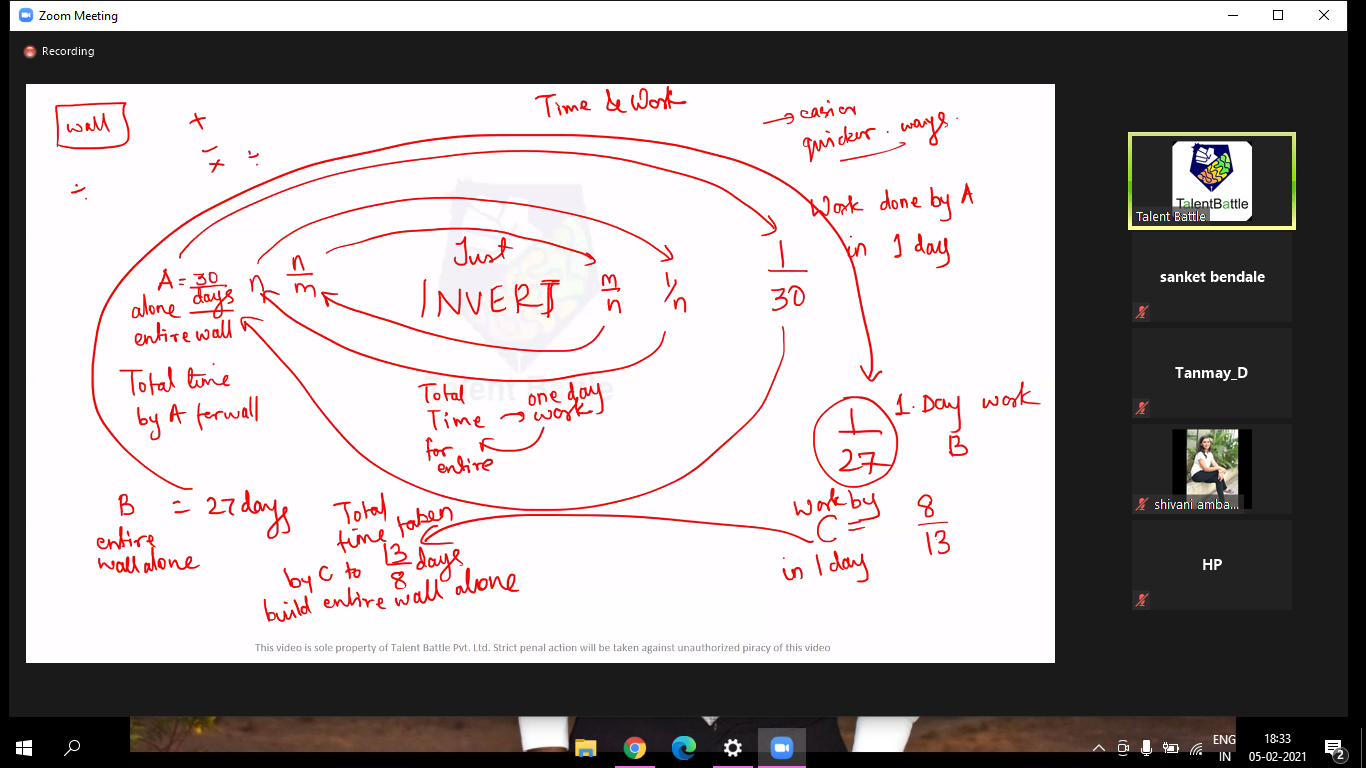 Zoom Meeting
Recording
wall
+
- ÷
×
÷
Time & Work
→ easier
quicker ways.
Work done by A
in 1 day
A = 30
alone days
entire wall
n
n
m
Just
INVERT
m
n
1/n
1
30
Total time
by A for wall
Total
Time → one day
work
for
entire
1
27
1 Day work
B
B = 27 days
entire
wall alone
Total
time taken
by C to 13 days
8
build entire wall alone
work by
C = 8
13
in 1 day
This video is sole property of Talent Battle Pvt. Ltd. Strict penal action will be taken against unauthorized piracy of this video
TalentBattle
Talent Battle
sanket bendale
Tanmay_D
shivani amba...
HP
ENG
IN
18:33
05-02-2021
2